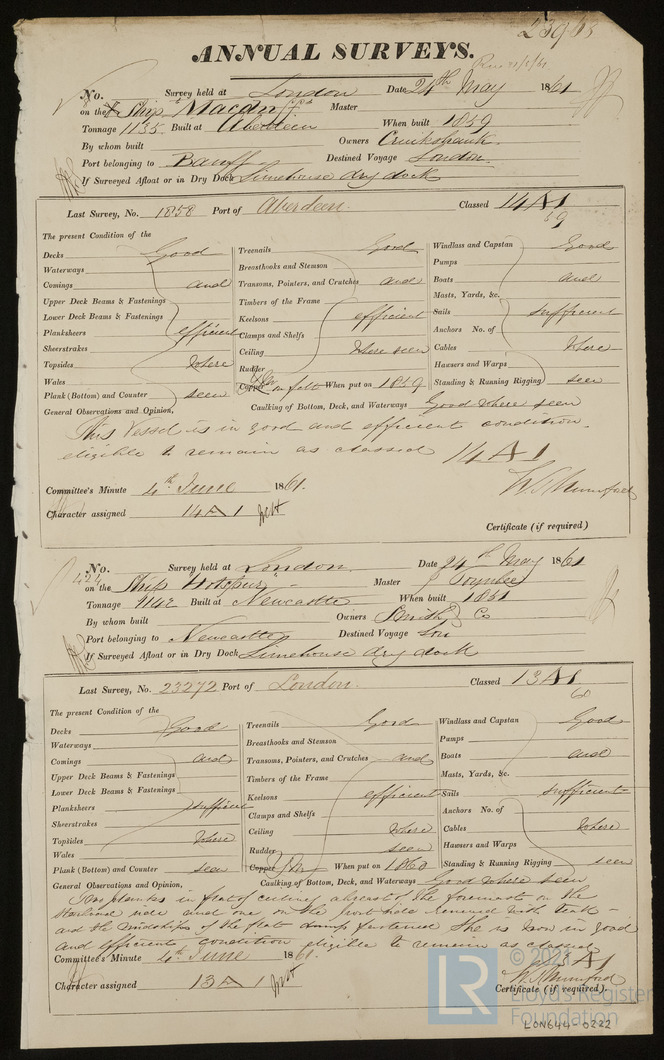 239
ANNUAL SURVEYS.
No. Survey held at London Date 24th May 1861
on the Ship Macduff Master
Tonnage 1135 Built at Aberdeen When built 1859
By whom built Owners Cruikshank
Port belonging to Banff Destined Voyage London
If Surveyed Afloat or in Dry Dock Limehouse dry dock
Last Survey, No. 1858 Port of Aberdeen Classed 14 A 1
59
The present Condition of the
Decks Good Treenails Good Windlass and Capstan Good
Waterways Breasthooks and Stemson Pumps
Comings and Transoms, Pointers, and Crutches and Boats and
Upper Deck Beams & Fastenings Timbers of the Frame Masts, Yards, &c.
Lower Deck Beams & Fastenings Keelsons efficient Sails sufficient
Planksheers efficient Clamps and Shelfs Anchors No. of
Sheerstrakes Ceiling where seen Cables where
Topsides where Rudder Hawsers and Warps
Wales Copper on felt When put on 1859 Standing & Running Rigging seen
Plank (Bottom) and Counter seen Caulking of Bottom, Deck, and Waterways Good where seen
General Observations and Opinion,
This Vessel is in good and efficient condition
eligible to remain as classed 14 A 1
W. S. Mumford
Committee's Minute 4th June 1861.
Character assigned 14 A 1
Certificate (if required)
No. 424 Survey held at London Date 24th May 1861
on the Ship "Hotspur" Master Toynbee
Tonnage 1142 Built at Newcastle When built 1851
By whom built Owners Smith & Co
Port belonging to Newcastle Destined Voyage
If Surveyed Afloat or in Dry Dock Limehouse dry dock
Last Survey, No. 23272 Port of London Classed 13 A 1
60
The present Condition of the
Decks Good Treenails Good Windlass and Capstan Good
Waterways Breasthooks and Stemson Pumps
Comings and Transoms, Pointers, and Crutches and Boats and
Upper Deck Beams & Fastenings Timbers of the Frame Masts, Yards, &c.
Lower Deck Beams & Fastenings Keelsons efficient Sails sufficient
Planksheers sufficient Clamps and Shelfs Anchors No. of
Sheerstrakes Ceiling where Cables where
Topsides where Rudder seen Hawsers and Warps
Wales Copper When put on 1860 Standing & Running Rigging seen
Plank (Bottom) and Counter seen Caulking of Bottom, Deck, and Waterways Good where seen
General Observations and Opinion,
Two planks in flat of ceiling abreast of the foremast on the
Starboard side and one on the port side renewed with teak
and the midships of the flat fastened She is now in good
and efficient condition eligible to remain as classed
13 A 1
W. S. Mumford
Committee's Minute 4th June 1861.
Character assigned 13 A 1
Certificate (if required).
© 2021
LR
Lloyd's Register
Foundation
LON644-0222